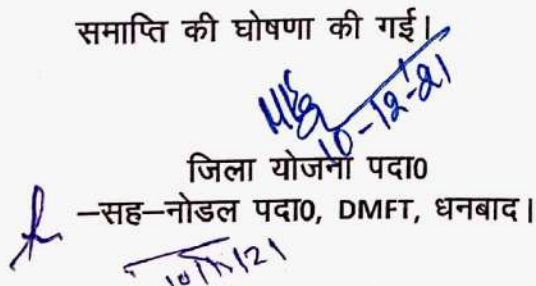 समाप्ति की घोषणा की गई।
10-12-21
जिला योजना पदा0
–सह–नोडल पदा0, DMFT, धनबाद।